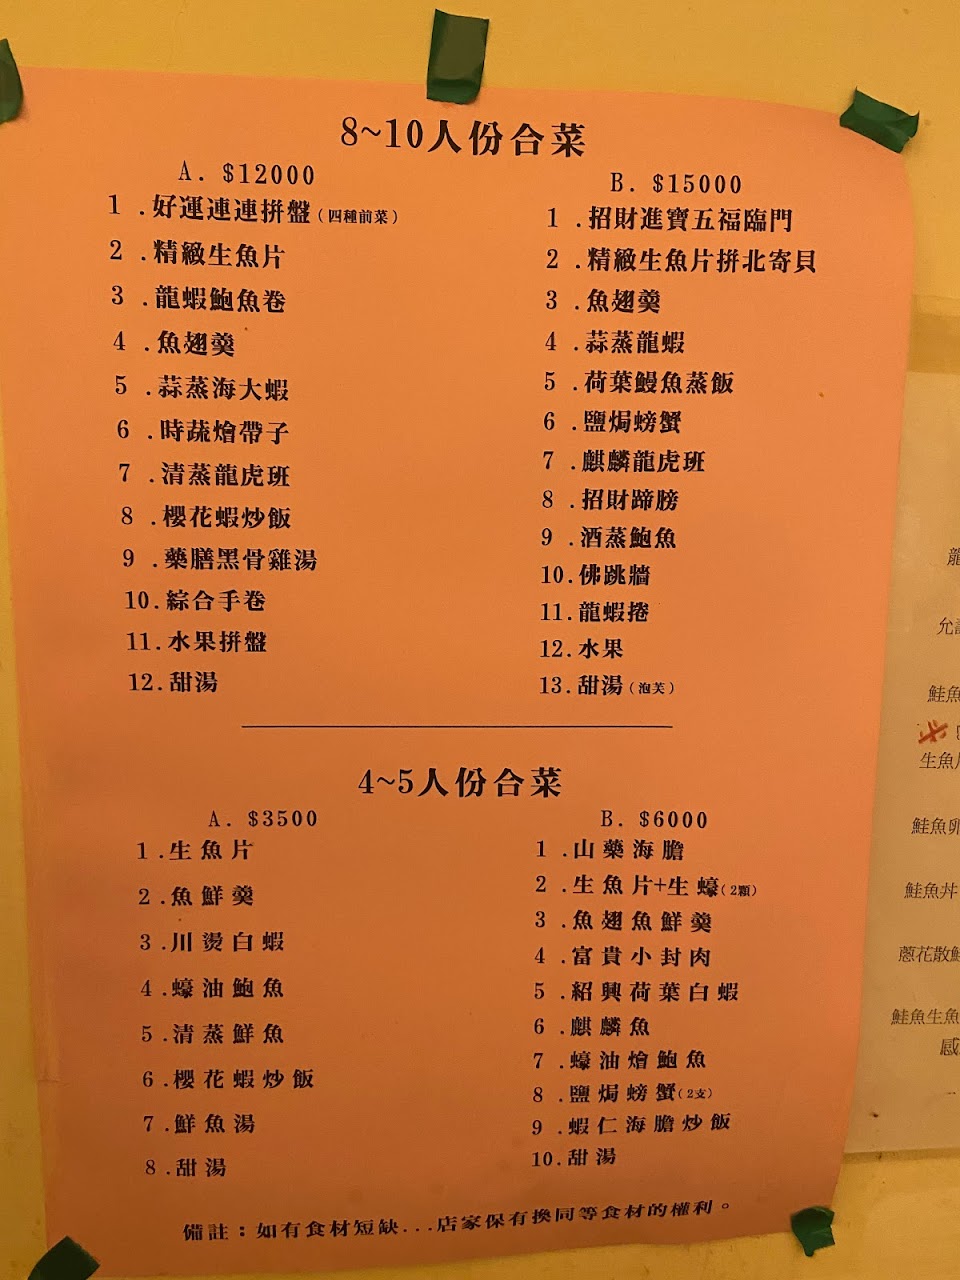 8~10人份合菜
A. $12000
1.好運連連拼盤(四種前菜)
2.精緻生魚片
3.龍蝦鮑魚卷
4.魚翅羹
5.蒜蒸海大蝦
6.時蔬燴帶子
7.清蒸龍虎班
8.櫻花蝦炒飯
9.藥膳黑骨雞湯
10.綜合手卷
11.水果拼盤
12.甜湯
B. $15000
1.招財進寶五福臨門
2.精緻生魚片拼北寄貝
3.魚翅羹
4.蒜蒸龍蝦
5.荷葉鰻魚蒸飯
6.鹽焗螃蟹
7.麒麟龍虎班
8.招財蹄膀
9.酒蒸鮑魚
10.佛跳牆
11.龍蝦捲
12.水果
13.甜湯(泡芙)
4~5人份合菜
A. $3500
1.生魚片
2.魚鮮羹
3.川燙白蝦
4.蠔油鮑魚
5.清蒸鮮魚
6.櫻花蝦炒飯
7.鮮魚湯
8.甜湯
B. $6000
1.山藥海膽
2.生魚片+生蠔(2顆)
3.魚翅魚鮮羹
4.富貴小封肉
5.紹興荷葉白蝦
6.麒麟魚
7.蠔油燴鮑魚
8.鹽焗螃蟹(2支)
9.蝦仁海膽炒飯
10.甜湯
備註：如有食材短缺...店家保有換同等食材的權利。
龍
允
鮭魚
生魚
鮭魚卵
鮭魚丼
蔥花散
鮭魚生魚
感